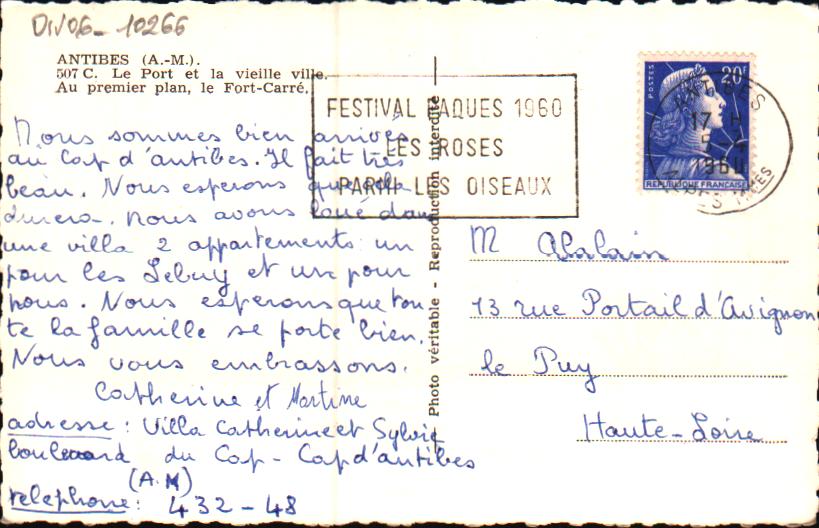 DIV06-10266
ANTIBES (A.-M.).
507 C. Le Port et la vieille ville.
Au premier plan, le Fort-Carré.
Nous sommes bien arrivés
au Cap d'antibes. Il fait très
beau. Nous esperons que cela
durera. Nous avons loué dans
une villa 2 appartements: un
pour les Lebuy et un pour
nous. Nous esperons que tou
te la famille se porte bien.
Nous vous embrassons.
Catherine et Martine
adresse: Villa Catherine et Sylvie
boulevard du Cap - Cap d'antibes
(A.M)
telephone: 432-48
Photo véritable - Reproduction interdite
FESTIVAL PAQUES 1960
LES ROSES
PARMI LES OISEAUX
POSTES
20F
REPUBLIQUE FRANÇAISE
ANTIBES
17 H
196
M Alalain
13 rue Portail d'Avignon
le Puy
Haute-Loire